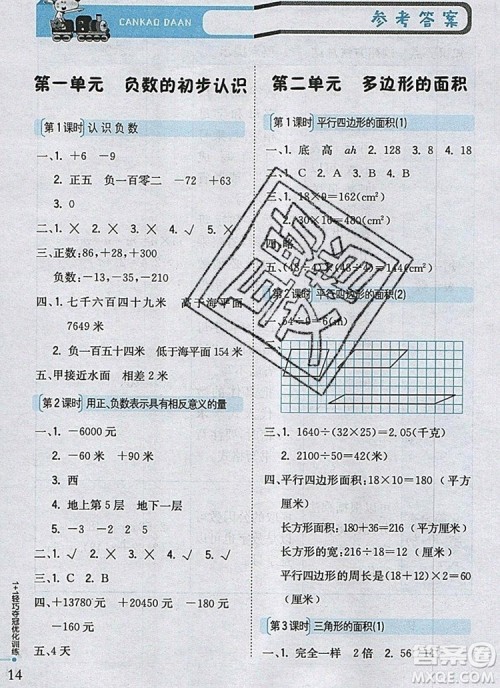 CANKAO DAAN
参考答案
第一单元 负数的初步认识
第1课时 认识负数
一、1. +6 -9
2. 正五 负一百零二 -16 +87
3. 0
二、1. × 2. × 3. × 4. √ 5. √
三、正数:86,+28,+300
负数:-13,-35,-210
四、1. 七千六百四十九米 高于海平面
7649米
2. 负一百五十四米 低于海平面154米
五、甲接近水面 相差2米
第2课时 用正、负数表示具有相反意义的量
一、1. -6000元
2. -60米 +90米
3. 西
4. 地上第5层 地下一层
5. -3 -2 -72 +63
二、1. √ 2. × 3. √
三、1. B 2. A 3. B
四、+13780元 -15元 -1210元
+16320元 -2000元
五、4天
1+1轻巧夺冠优化训练
14
第二单元 多边形的面积
第1课时 平行四边形的面积(1)
一、1. 底 高 ah 2. 128 3. 8 4. 18
二、1. C A 2. B 3. C
三、1. 18×9=162(cm²)
2. 30×16=480(cm²)
四、略
五、(48÷4)×12=144(cm²)
第2课时 平行四边形的面积(2)
一、54÷9=6(m)
三、1. 1640÷(32×25)=2.05(千克)
2. 2100÷(50×35)=1.2(元)
四、平行四边形面积:18×10=180(平方
厘米)
长方形面积:180+36=216(平方厘米)
长方形的宽:216÷18=12(厘米)
平行四边形的周长是(18+12)×2=60
(厘米)
第3课时 三角形的面积(1)
一、1. 完全一样 2倍 2. 56